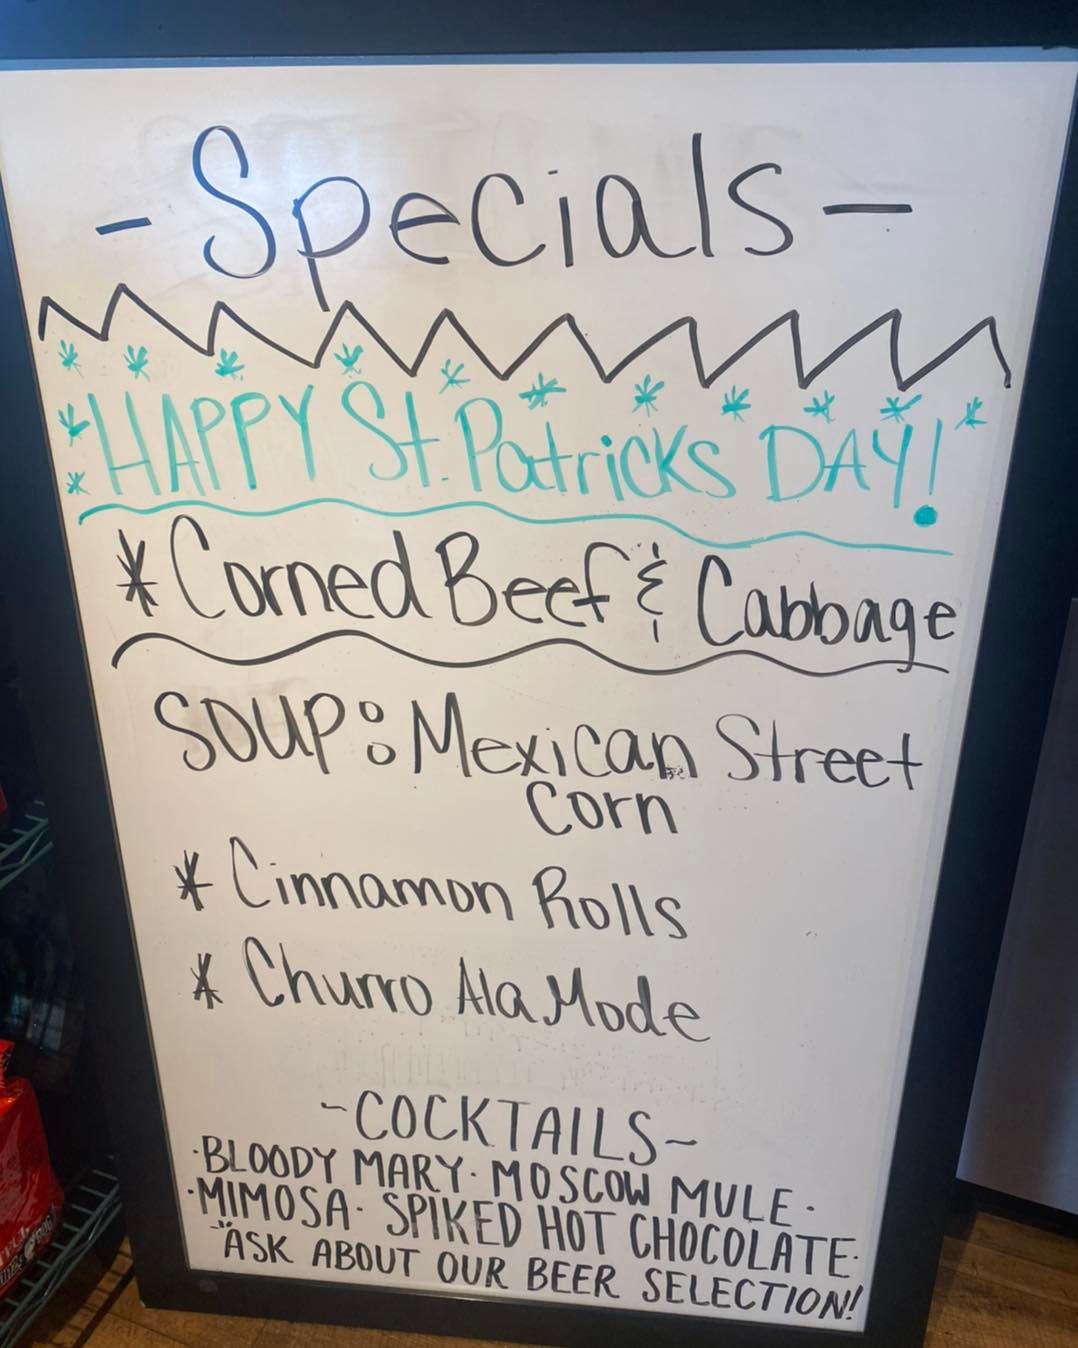 -Specials-
HAPPY St. Patricks DAY!
* Corned Beef & Cabbage
SOUP: Mexican Street
Corn
* Cinnamon Rolls
* Churro Ala Mode
~COCKTAILS~
·BLOODY MARY· MOSCOW MULE·
·MIMOSA· SPIKED HOT CHOCOLATE·
"ASK ABOUT OUR BEER SELECTION!